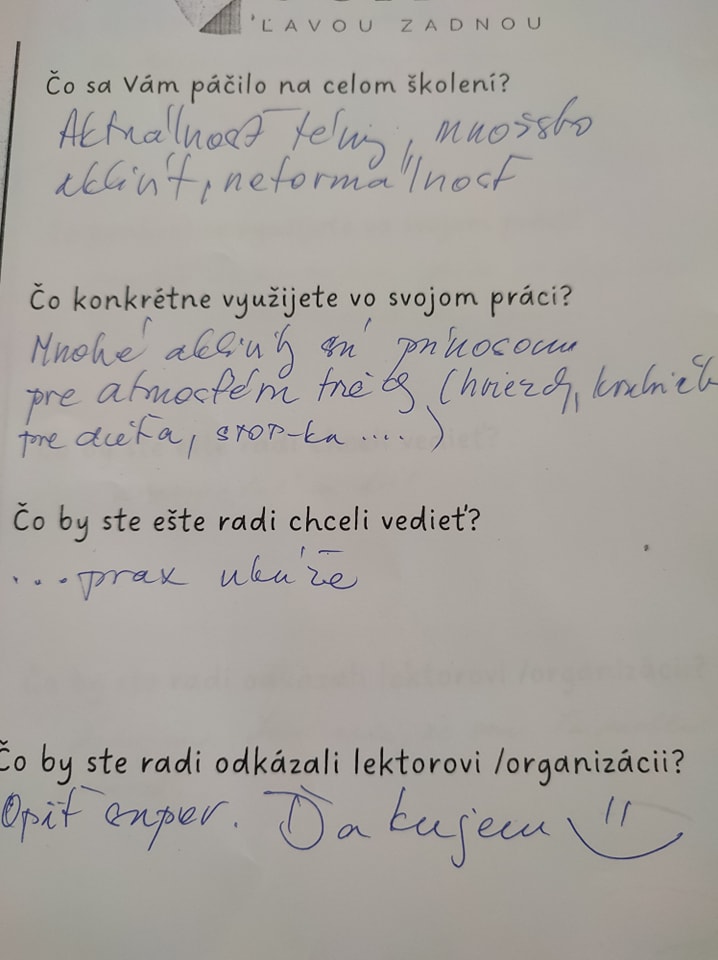 ĽAVOU ZADNOU
Čo sa Vám páčilo na celom školení?
Aktuálnosť témy, množstvo
aktivít, neformálnosť
Čo konkrétne využijete vo svojom práci?
Mnohé aktivity sú prínosom
pre atmosféru triedy (hviezdy,
pre dieťa, STOP-ka ....)
Čo by ste ešte radi chceli vedieť?
...prax ukáže
Čo by ste radi odkázali lektorovi /organizácii?
Opäť super. Ďakujem